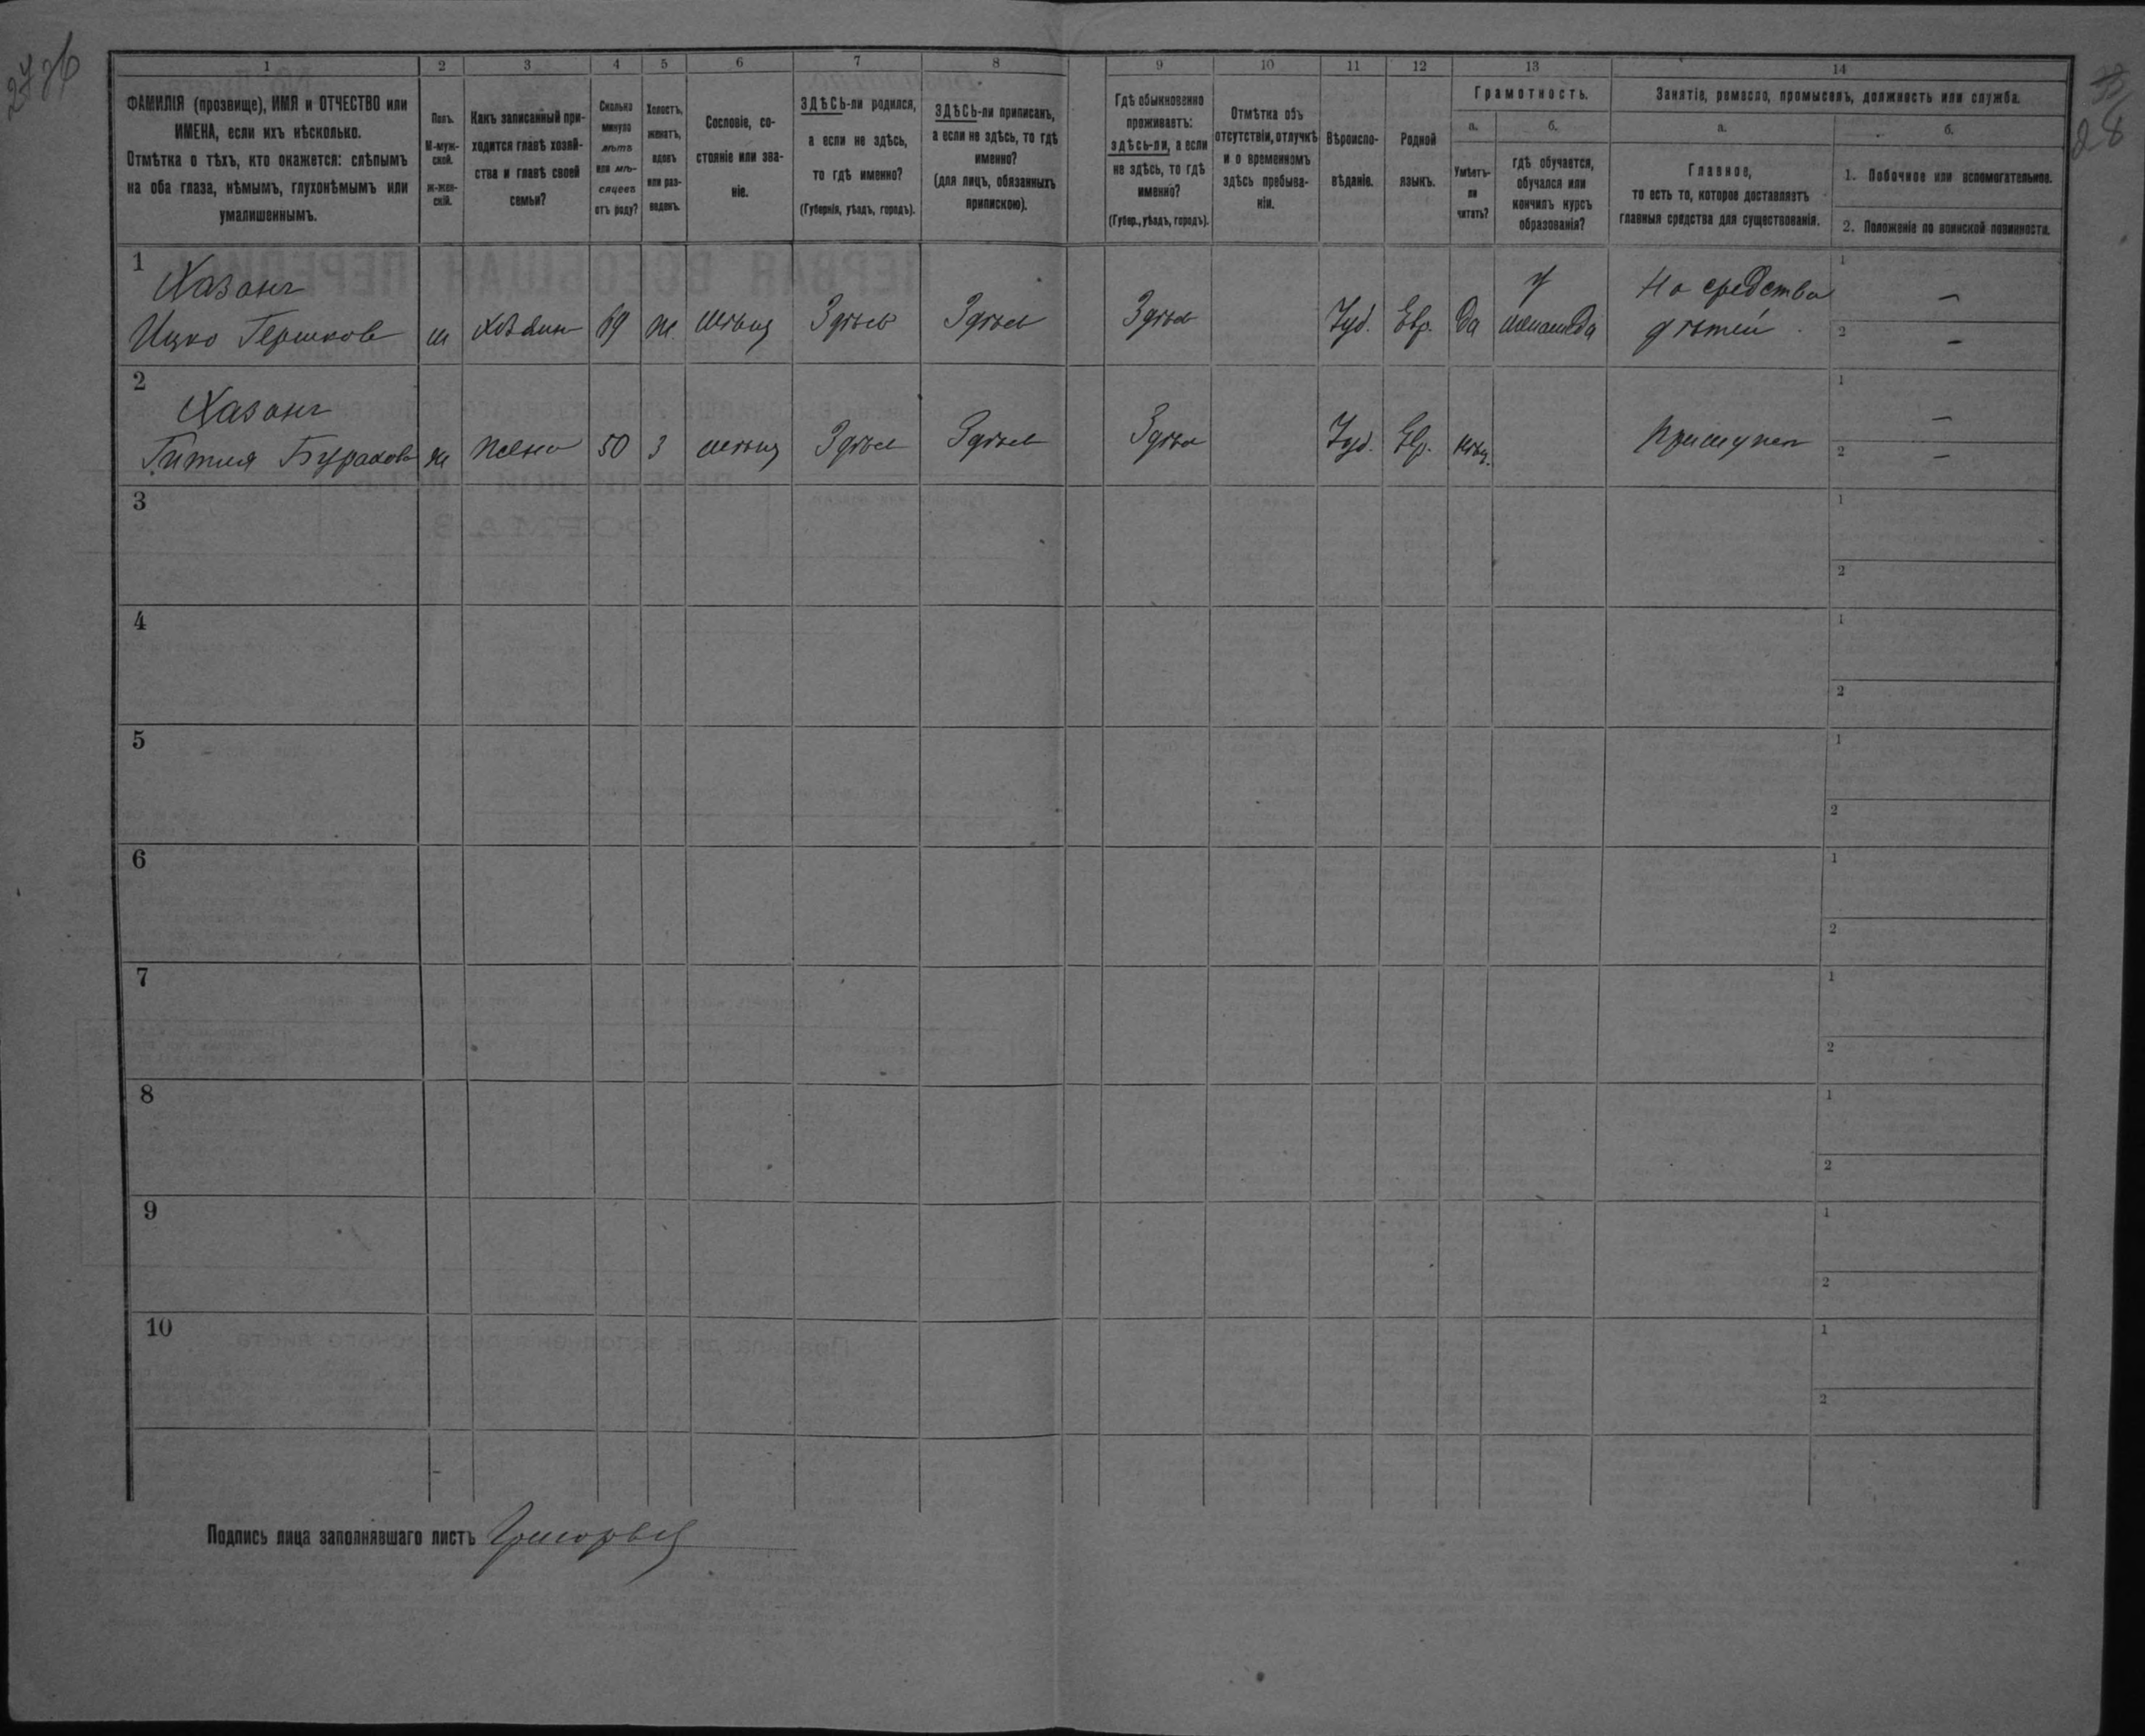 2776
28
1 2 3 4 5 6 7 8 9 10 11 12 13 14
ФАМИЛІЯ (прозвище), ИМЯ и ОТЧЕСТВО или
ИМЕНА, если ихъ нѣсколько.
Отмѣтка о тѣхъ, кто окажется: слѣпымъ
на оба глаза, нѣмымъ, глухонѣмымъ или
умалишеннымъ.
Полъ.
М-муж-
ской.
ж-жен-
скій.
Какъ записанный при-
ходится главѣ хозяй-
ства и главѣ своей
семьи?
Сколько
минуло
лѣтъ
или мѣ-
сяцевъ
отъ роду?
Холостъ,
женатъ,
вдовъ
или раз-
веденъ.
Сословіе, со-
стояніе или зва-
ніе.
ЗДѢСЬ-ли родился,
а если не здѣсь,
то гдѣ именно?
(Губернія, уѣздъ, городъ).
ЗДѢСЬ-ли приписанъ,
а если не здѣсь, то гдѣ
именно?
(для лицъ, обязанныхъ
припискою).
Гдѣ обыкновенно
проживаетъ:
здѣсь-ли, а если
не здѣсь, то гдѣ
именно?
(Губер., уѣздъ, городъ).
Отмѣтка объ
отсутствіи, отлучкѣ
и о временномъ
здѣсь пребыва-
ніи.
Вѣроиспо-
вѣданіе.
Родной
языкъ.
Грамотность.
а.
Умѣетъ-
ли
читать?
б.
гдѣ обучается,
обучался или
кончилъ курсъ
образованія?
Занятіе, ремесло, промыселъ, должность или служба.
а.
Главное,
то есть то, которое доставляетъ
главныя средства для существованія.
б.
1. Побочное или вспомогательное.
2. Положеніе по воинской повинности.
1
Хазанъ
Ицко Гершковъ м хозяин 69 ж. мѣщ Здѣсь Здѣсь Здѣсь Іуд. Евр. Да
у
меламеда
На средства
дѣтей
1 –
2 –
2
Хазанъ
Гитля ж жена 50 3 мѣщ Здѣсь Здѣсь Здѣсь Іуд. Евр. нѣт.
1 –
2 –
3
1
2
4
1
2
5
1
2
6
1
2
7
1
2
8
1
2
9
1
2
10
1
2
Подпись лица заполнявшаго листъ